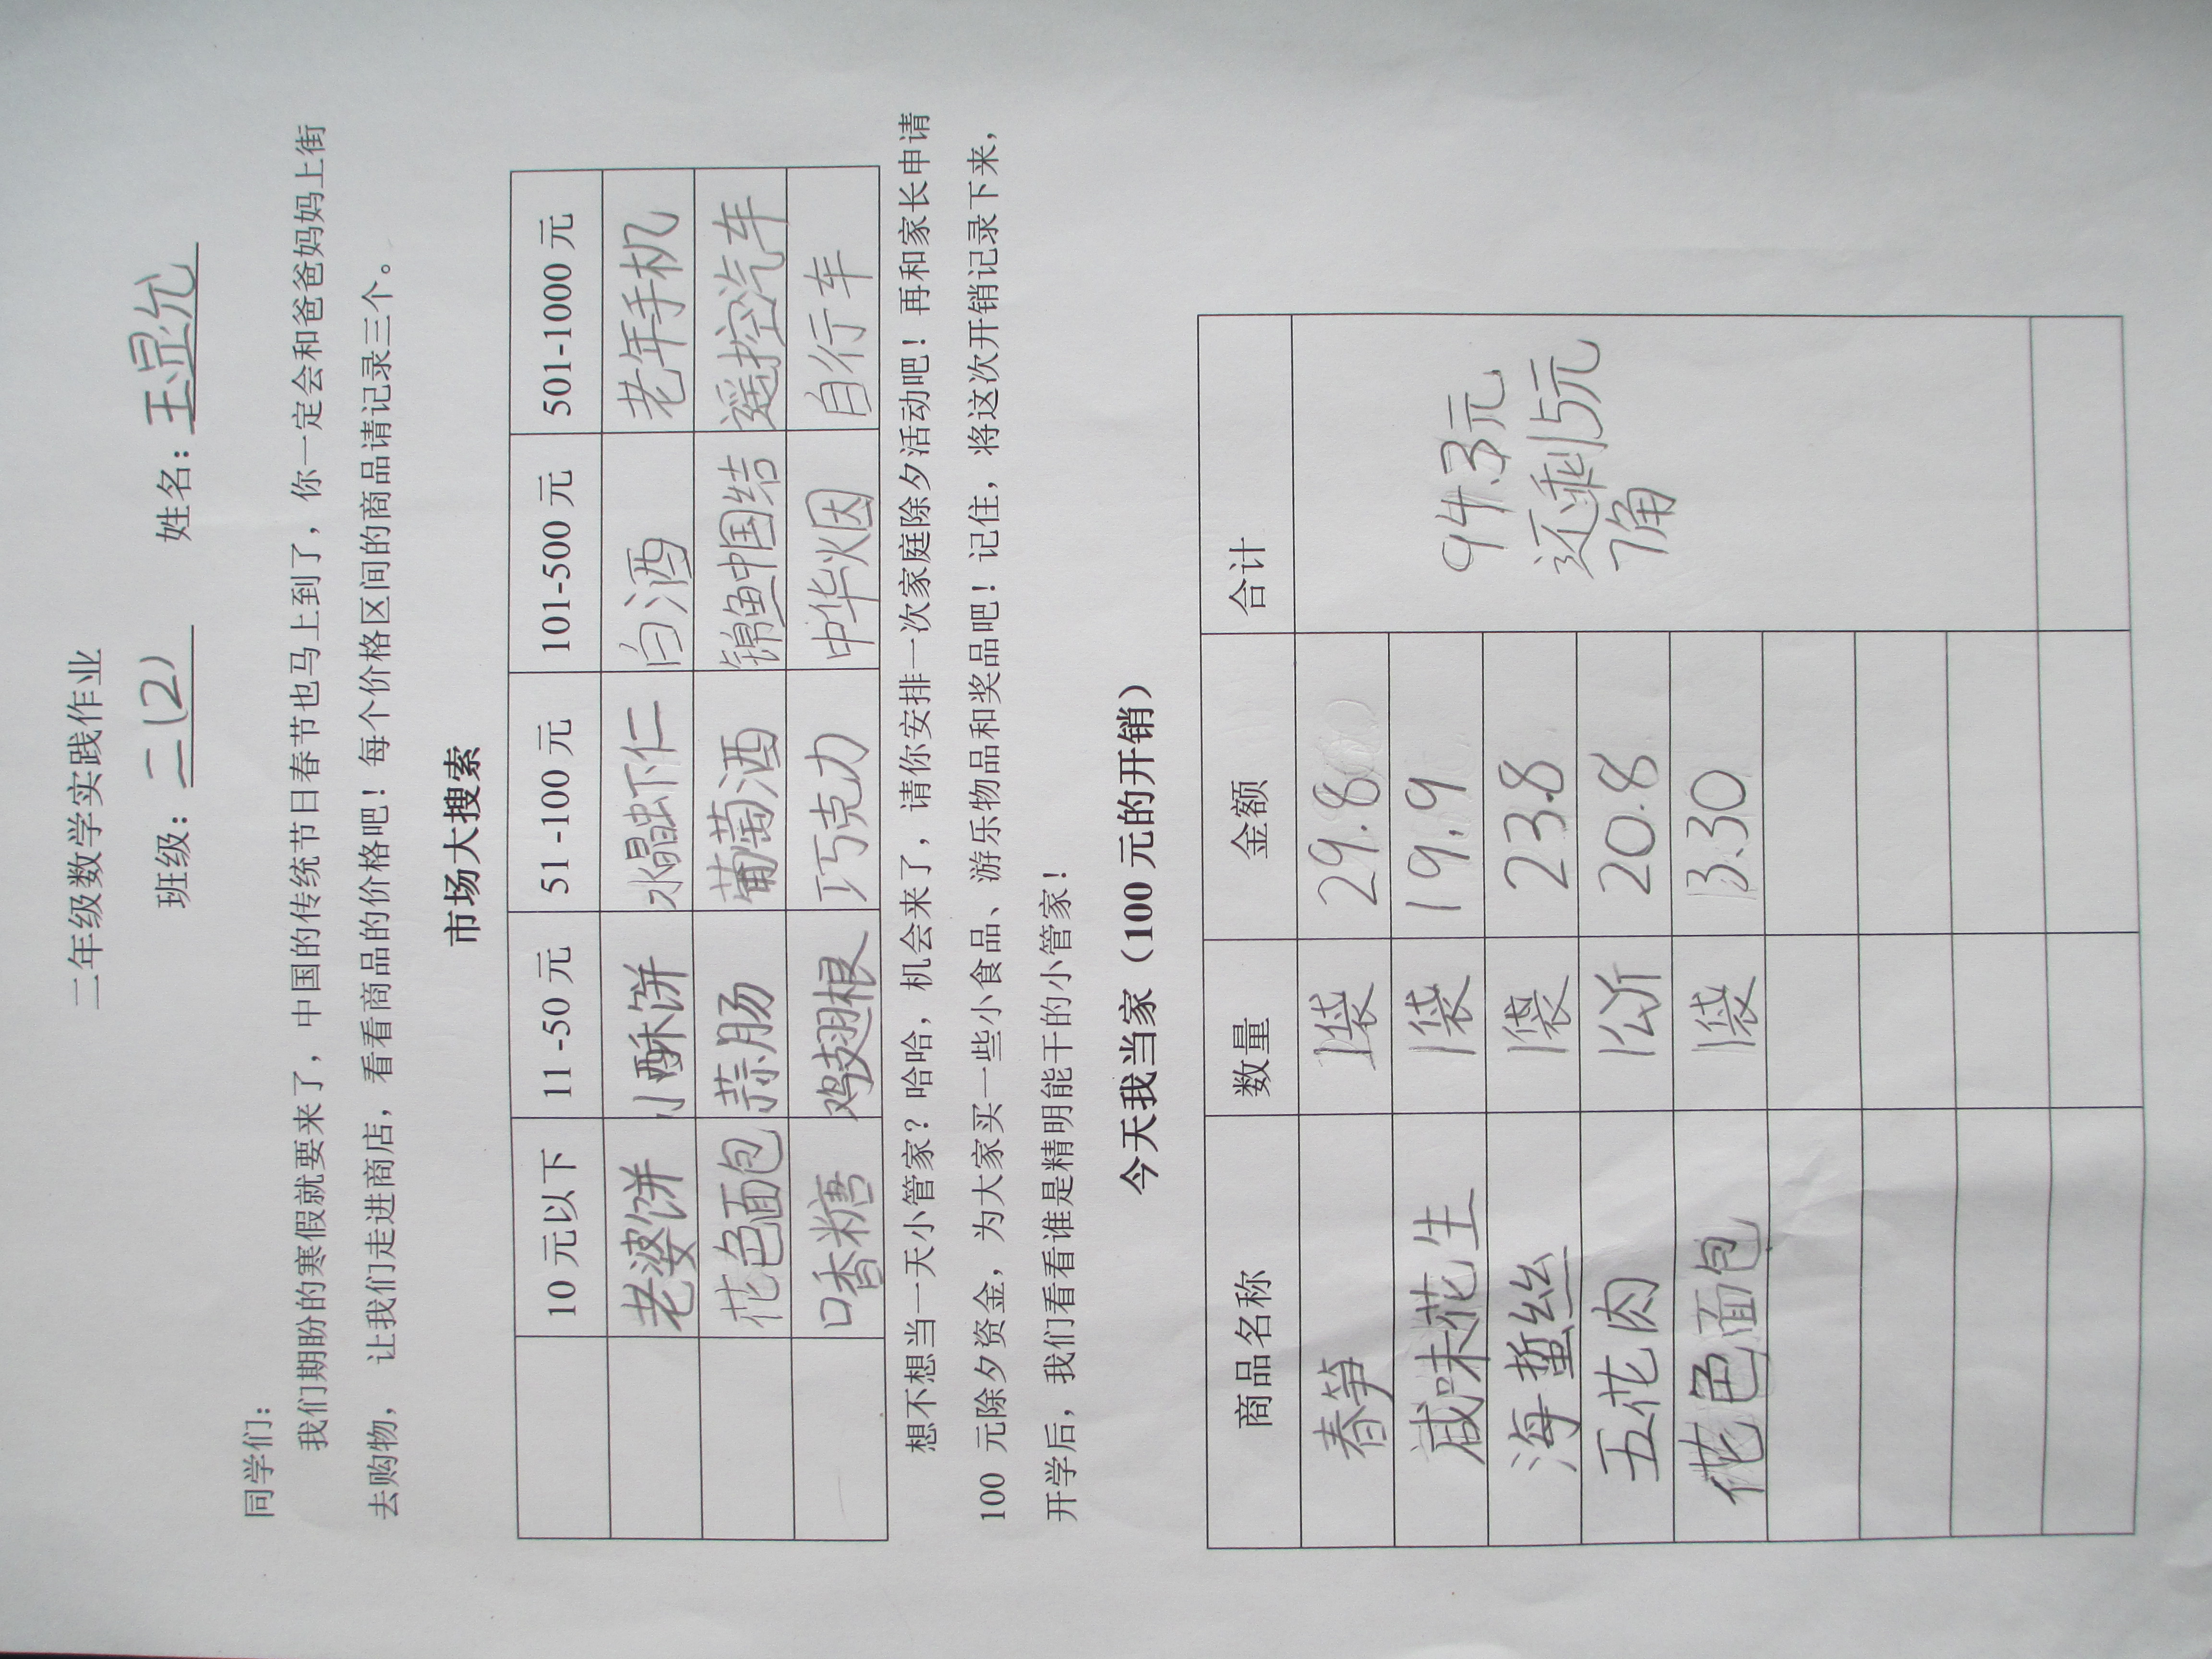 二年级数学实践作业
班级：二(2) 姓名：王显允
同学们：
我们期盼的寒假就要来了，中国的传统节日春节也马上到了，你一定会和爸爸妈妈上街
去购物，让我们走进商店，看看商品的价格吧！每个价格区间的商品请记录三个。
市场大搜索
10 元以下 11 -50 元 51 -100 元 101-500 元 501-1000 元
老婆饼 小酥饼 水晶虾仁 白酒 老年手机
花色面包 蒜肠 葡萄酒 锦鱼中国结 遥控汽车
口香糖 鸡翅根 巧克力 中华烟 自行车
想不想当一天小管家？哈哈，机会来了，请你安排一次家庭除夕活动吧！再和家长申请
100 元除夕资金，为大家买一些小食品、游乐物品和奖品吧！记住，将这次开销记录下来，
开学后，我们看看谁是精明能干的小管家！
今天我当家（100 元的开销）
商品名称 数量 金额 合计
春笋 1袋 29.8
咸味花生 1袋 19.9
海蜇丝 1袋 23.8
五花肉 1公斤 20.8
花色面包 1袋 3.30
94.3元
还剩5元
7角